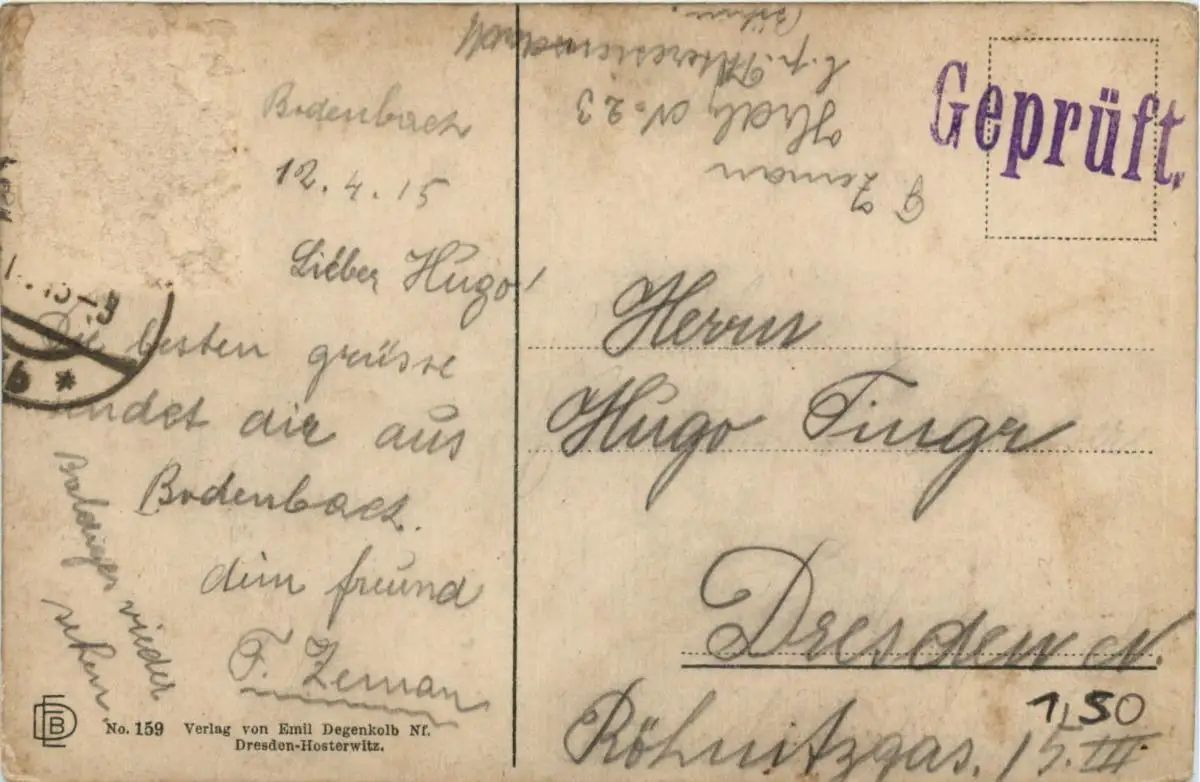 Bodenbach
12.4.15
Lieber Hugo!
Die besten grüsse
sendet dir aus
Bodenbach.
dein freund
F. Zeman
Baldiges wieder
sehen
No. 159 Verlag von Emil Degenkolb Nf.
Dresden-Hosterwitz.
Zeman
N. 23
Geprüft.
Herrn
Hugo Fingr
Dresden N.
Röhnitzgas. 15. III
1,50